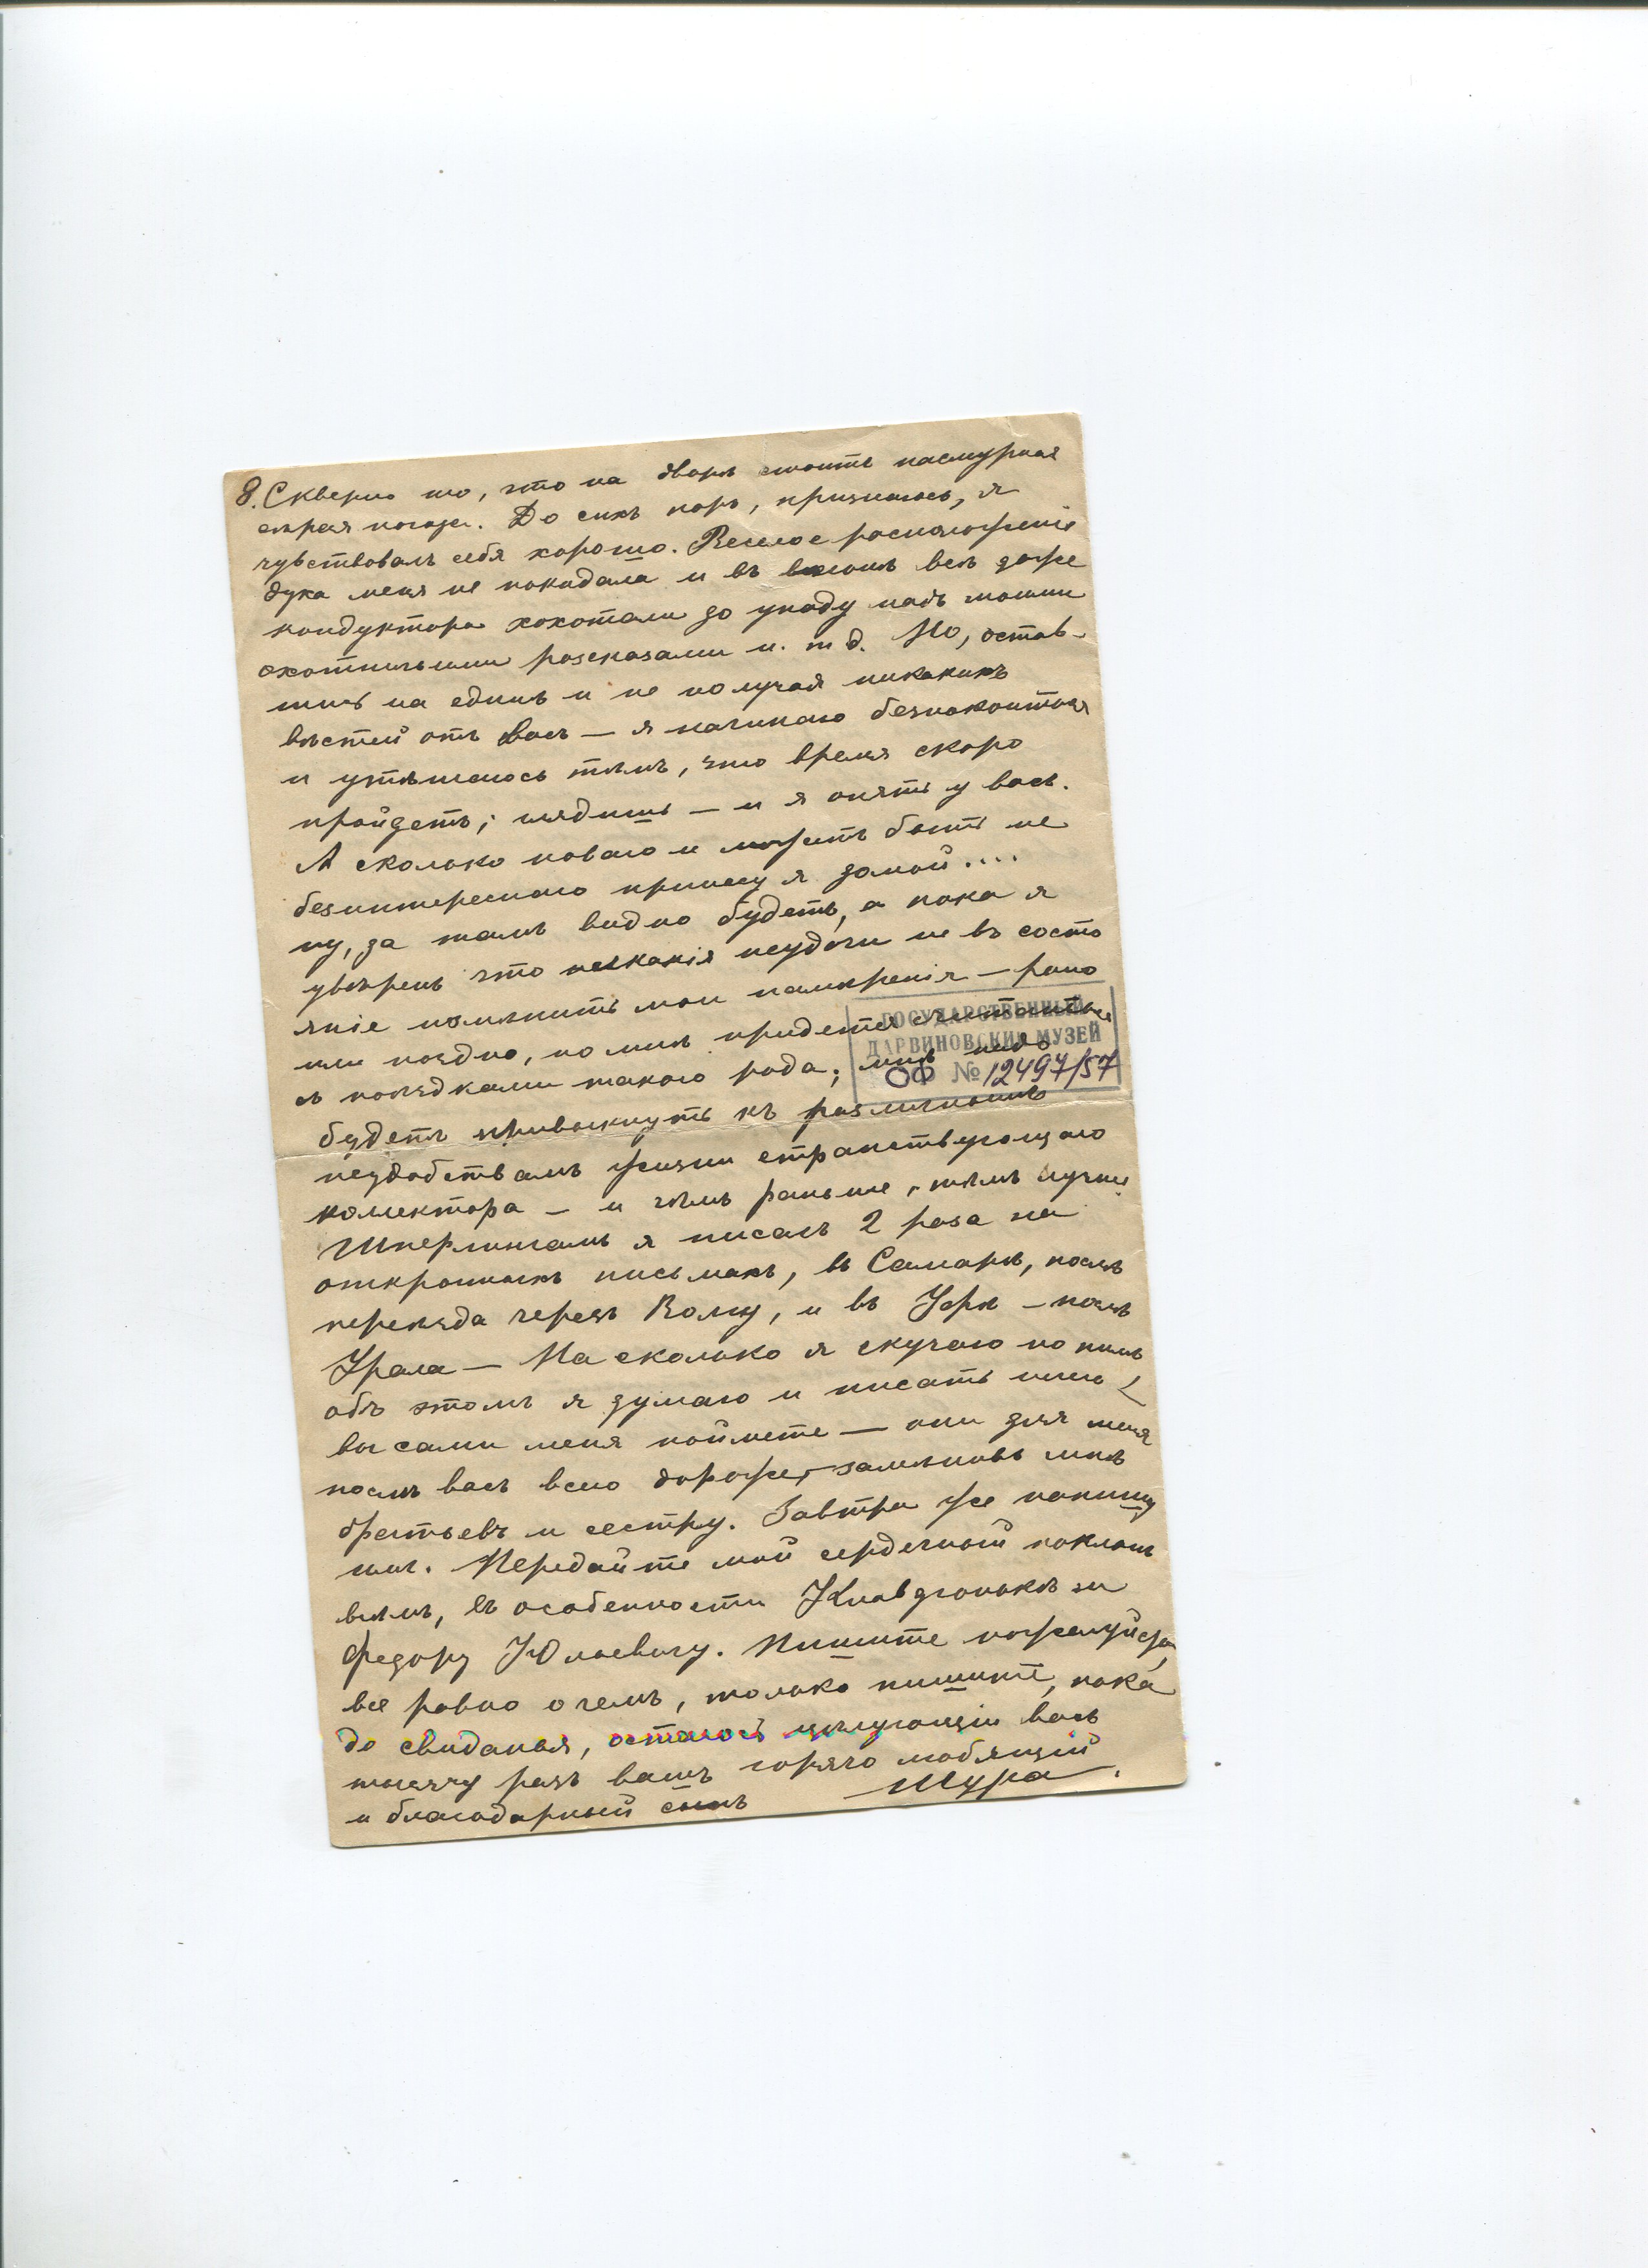 8. Скверно то, что на дворѣ стоитъ пасмурная
сѣрая погода. До сихъ поръ, признаюсь, я
чувствовалъ себя хорошо. Веселое расположеніе
духа меня не покидала и въ вагонѣ всѣ даже
кондуктора хохотали до упаду надъ моими
охотничьими разсказами и. т д. Но, остав-
шись на единѣ и не получая никакихъ
вѣстей отъ Васъ — я начинаю безпокоиться
и утѣшаюсь тѣмъ, что время скоро
пройдетъ; глядишь — и я опять у васъ.
А сколько новаго и можетъ быть не
безинтереснаго принесу я домой....
ну, да тамъ видно будетъ, а пока я
увѣренъ что никакія неудачи не въ состо
яніе измѣнить мои намѣренія — рано
или поздно, но мнѣ придется считаться
съ поѣздками такого рода; мнѣ надо
будетъ привыкнуть къ различнымъ
неудобствамъ жизни странствующаго
коллектора — и чѣмъ раньше, тѣмъ лучше
Шперлингамъ я писалъ 2 раза на
открытыхъ письмахъ, въ Самарѣ, послѣ
переѣзда черезъ Волгу, и въ Уфѣ — послѣ
Урала — На сколько я скучаю по нимъ
объ этомъ я думаю и писать
вы сами меня поймете — они для меня
послѣ васъ всего дороже, замѣнивъ мнѣ
братьевъ и сестру. Завтра же напишу
имъ. Передайте мой сердечный поклонъ
всѣмъ, въ особенности Клавдюнькѣ и
Федору Юльевичу. Пишите пожалуйста,
все равно о чемъ, только пишите, пока
до свиданья, остаюсь цѣлующій васъ
тысячу разъ вашъ горячо любящій
и благодарный сынъ Шура.
ГОСУДАРСТВЕННЫЙ
ДАРВИНОВСКИЙ МУЗЕЙ
ОФ № 12497/57